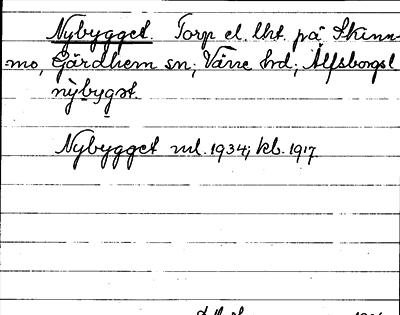 Nybygget. Torp el. lht. på Skinn-
mo, Gärdhem sn; Väne hd; Älfsborgs l
nỳbygət.
Nybygget ml. 1934; kb. 1917.